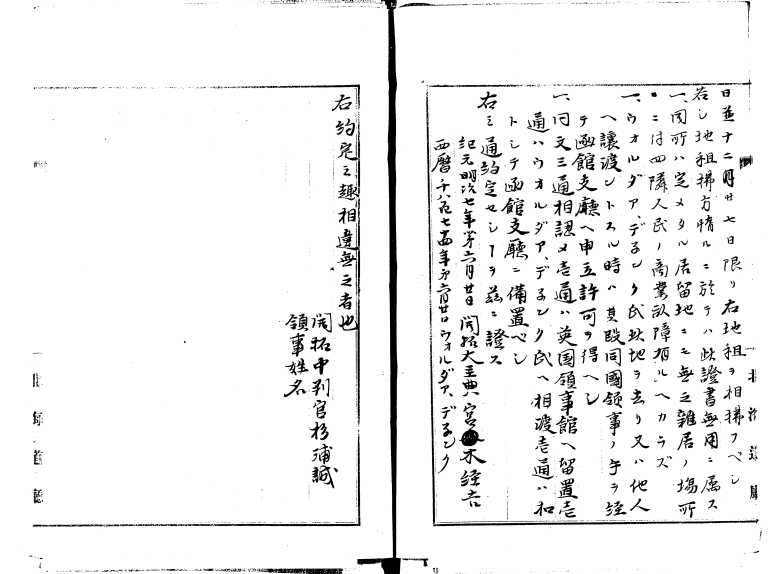 日並十二月廿七日限リ右地租ヲ相拂フベシ
若シ地租拂方惰ルニ於テハ此證書無用ニ属ス
一、同所ハ定メタル居留地ニモ無之雜居ノ場所
ニ付四隣人民ノ商業故障有ルヘカラズ
一、ウオルダア、デヨンク氏此地ヲ去リ又ハ他人
ヘ讓渡シトスル時ハ其段同國領事ノ手ヲ経
テ函館支廳ヘ申立許可ヲ得ヘシ
一、同文三通相認メ壱通ハ英国領事館ヘ留置壱
通ハウオルダア、デヨンク氏ヘ相渡壱通ハ扣
トシテ函館支廳ニ備置ベシ
右之通約定セシヿヲ茲ニ證ス
紀元明治七年第六月廿日 開拓大主典 宮木経吉
西暦千八百七十四年第六月廿日 ウォルダア、デヨンク
右約定之趣相違無之者也
開拓中判官杉浦誠
領事姓名
北海道廳